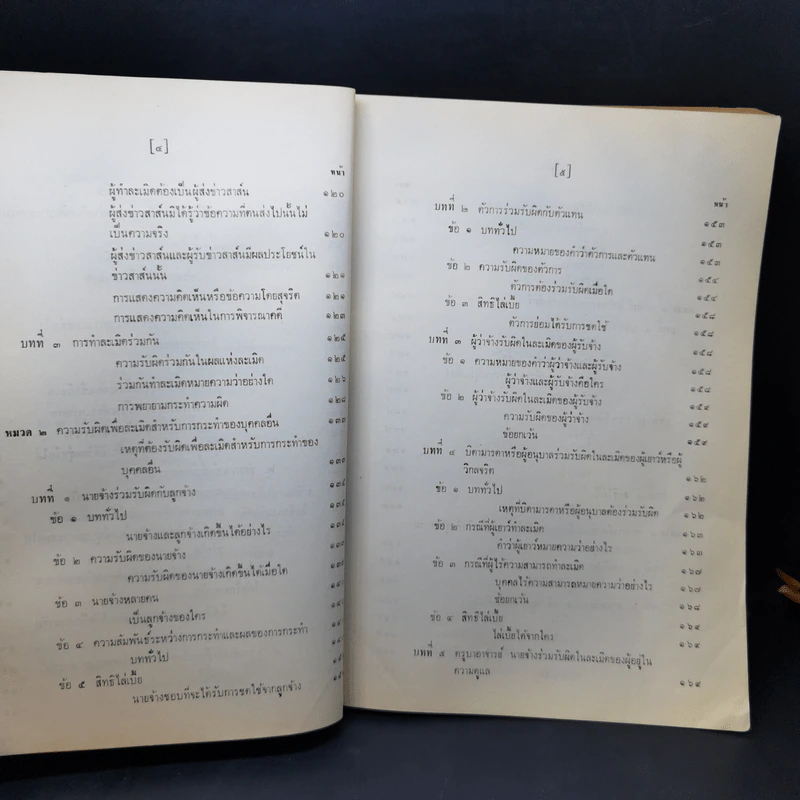 [๔]
หน้า
ผู้ทำละเมิดต้องเป็นผู้ส่งข่าวสาส์น ๑๒๐
ผู้ส่งข่าวสาส์นมิได้รู้ว่าข้อความที่ตนส่งไปนั้นไม่
เป็นความจริง ๑๒๐
ผู้ส่งข่าวสาส์นและผู้รับข่าวสาส์นมีผลประโยชน์ใน
ข่าวสาส์นนั้น ๑๒๑
การแสดงความคิดเห็นหรือข้อความโดยสุจริต ๑๒๑
การแสดงความคิดเห็นในการพิจารณาคดี ๑๒๓
บทที่ ๓ การทำละเมิดร่วมกัน ๑๒๕
ความรับผิดร่วมกันในผลแห่งละเมิด ๑๒๕
ร่วมกันทำละเมิดหมายความว่าอย่างใด ๑๒๖
การพยายามกระทำความผิด ๑๒๘
หมวด ๒ ความรับผิดเพื่อละเมิดสำหรับการกระทำของบุคคลอื่น ๑๓๓
เหตุที่ต้องรับผิดเพื่อละเมิดสำหรับการกระทำของ
บุคคลอื่น ๑๓๓
บทที่ ๑ นายจ้างร่วมรับผิดกับลูกจ้าง
ข้อ ๑ บททั่วไป
นายจ้างและลูกจ้างเกิดขึ้นได้อย่างไร
ข้อ ๒ ความรับผิดของนายจ้าง
ความรับผิดของนายจ้างเกิดขึ้นได้เมื่อใด
ข้อ ๓ นายจ้างหลายคน
เป็นลูกจ้างของใคร
ข้อ ๔ ความสัมพันธ์ระหว่างการกระทำและผลของการกระทำ
บททั่วไป
ข้อ ๕ สิทธิไล่เบี้ย
นายจ้างชอบที่จะได้รับการชดใช้จากลูกจ้าง
[๕]
หน้า
บทที่ ๒ ตัวการร่วมรับผิดกับตัวแทน ๑๕๓
ข้อ ๑ บททั่วไป ๑๕๓
ความหมายของคำว่าตัวการและตัวแทน ๑๕๓
ข้อ ๒ ความรับผิดของตัวการ ๑๕๔
ตัวการต้องร่วมรับผิดเมื่อใด ๑๕๔
ข้อ ๓ สิทธิไล่เบี้ย ๑๕๘
ตัวการย่อมได้รับการชดใช้ ๑๕๘
บทที่ ๓ ผู้ว่าจ้างรับผิดในละเมิดของผู้รับจ้าง ๑๕๘
ข้อ ๑ ความหมายของคำว่าผู้ว่าจ้างและผู้รับจ้าง ๑๕๘
ผู้ว่าจ้างและผู้รับจ้างคือใคร ๑๕๘
ข้อ ๒ ผู้ว่าจ้างรับผิดในละเมิดของผู้รับจ้าง ๑๕๙
ความรับผิดของผู้ว่าจ้าง ๑๕๙
ข้อยกเว้น ๑๕๙
บทที่ ๔ บิดามารดาหรือผู้อนุบาลร่วมรับผิดในละเมิดของผู้เยาว์หรือผู้
วิกลจริต ๑๖๒
ข้อ ๑ บททั่วไป ๑๖๒
เหตุที่บิดามารดาหรือผู้อนุบาลต้องร่วมรับผิด ๑๖๒
ข้อ ๒ กรณีที่ผู้เยาว์ทำละเมิด ๑๖๓
คำว่าผู้เยาว์หมายความว่าอย่างไร ๑๖๓
ข้อ ๓ กรณีที่ผู้ไร้ความสามารถทำละเมิด ๑๖๗
บุคคลไร้ความสามารถหมายความว่าอย่างไร ๑๖๗
ข้อยกเว้น ๑๖๘
ข้อ ๔ สิทธิไล่เบี้ย ๑๖๙
ไล่เบี้ยได้จากใคร ๑๖๙
บทที่ ๕ ครูบาอาจารย์ นายจ้างร่วมรับผิดในละเมิดของผู้อยู่ใน
ความดูแล ๑๖๙